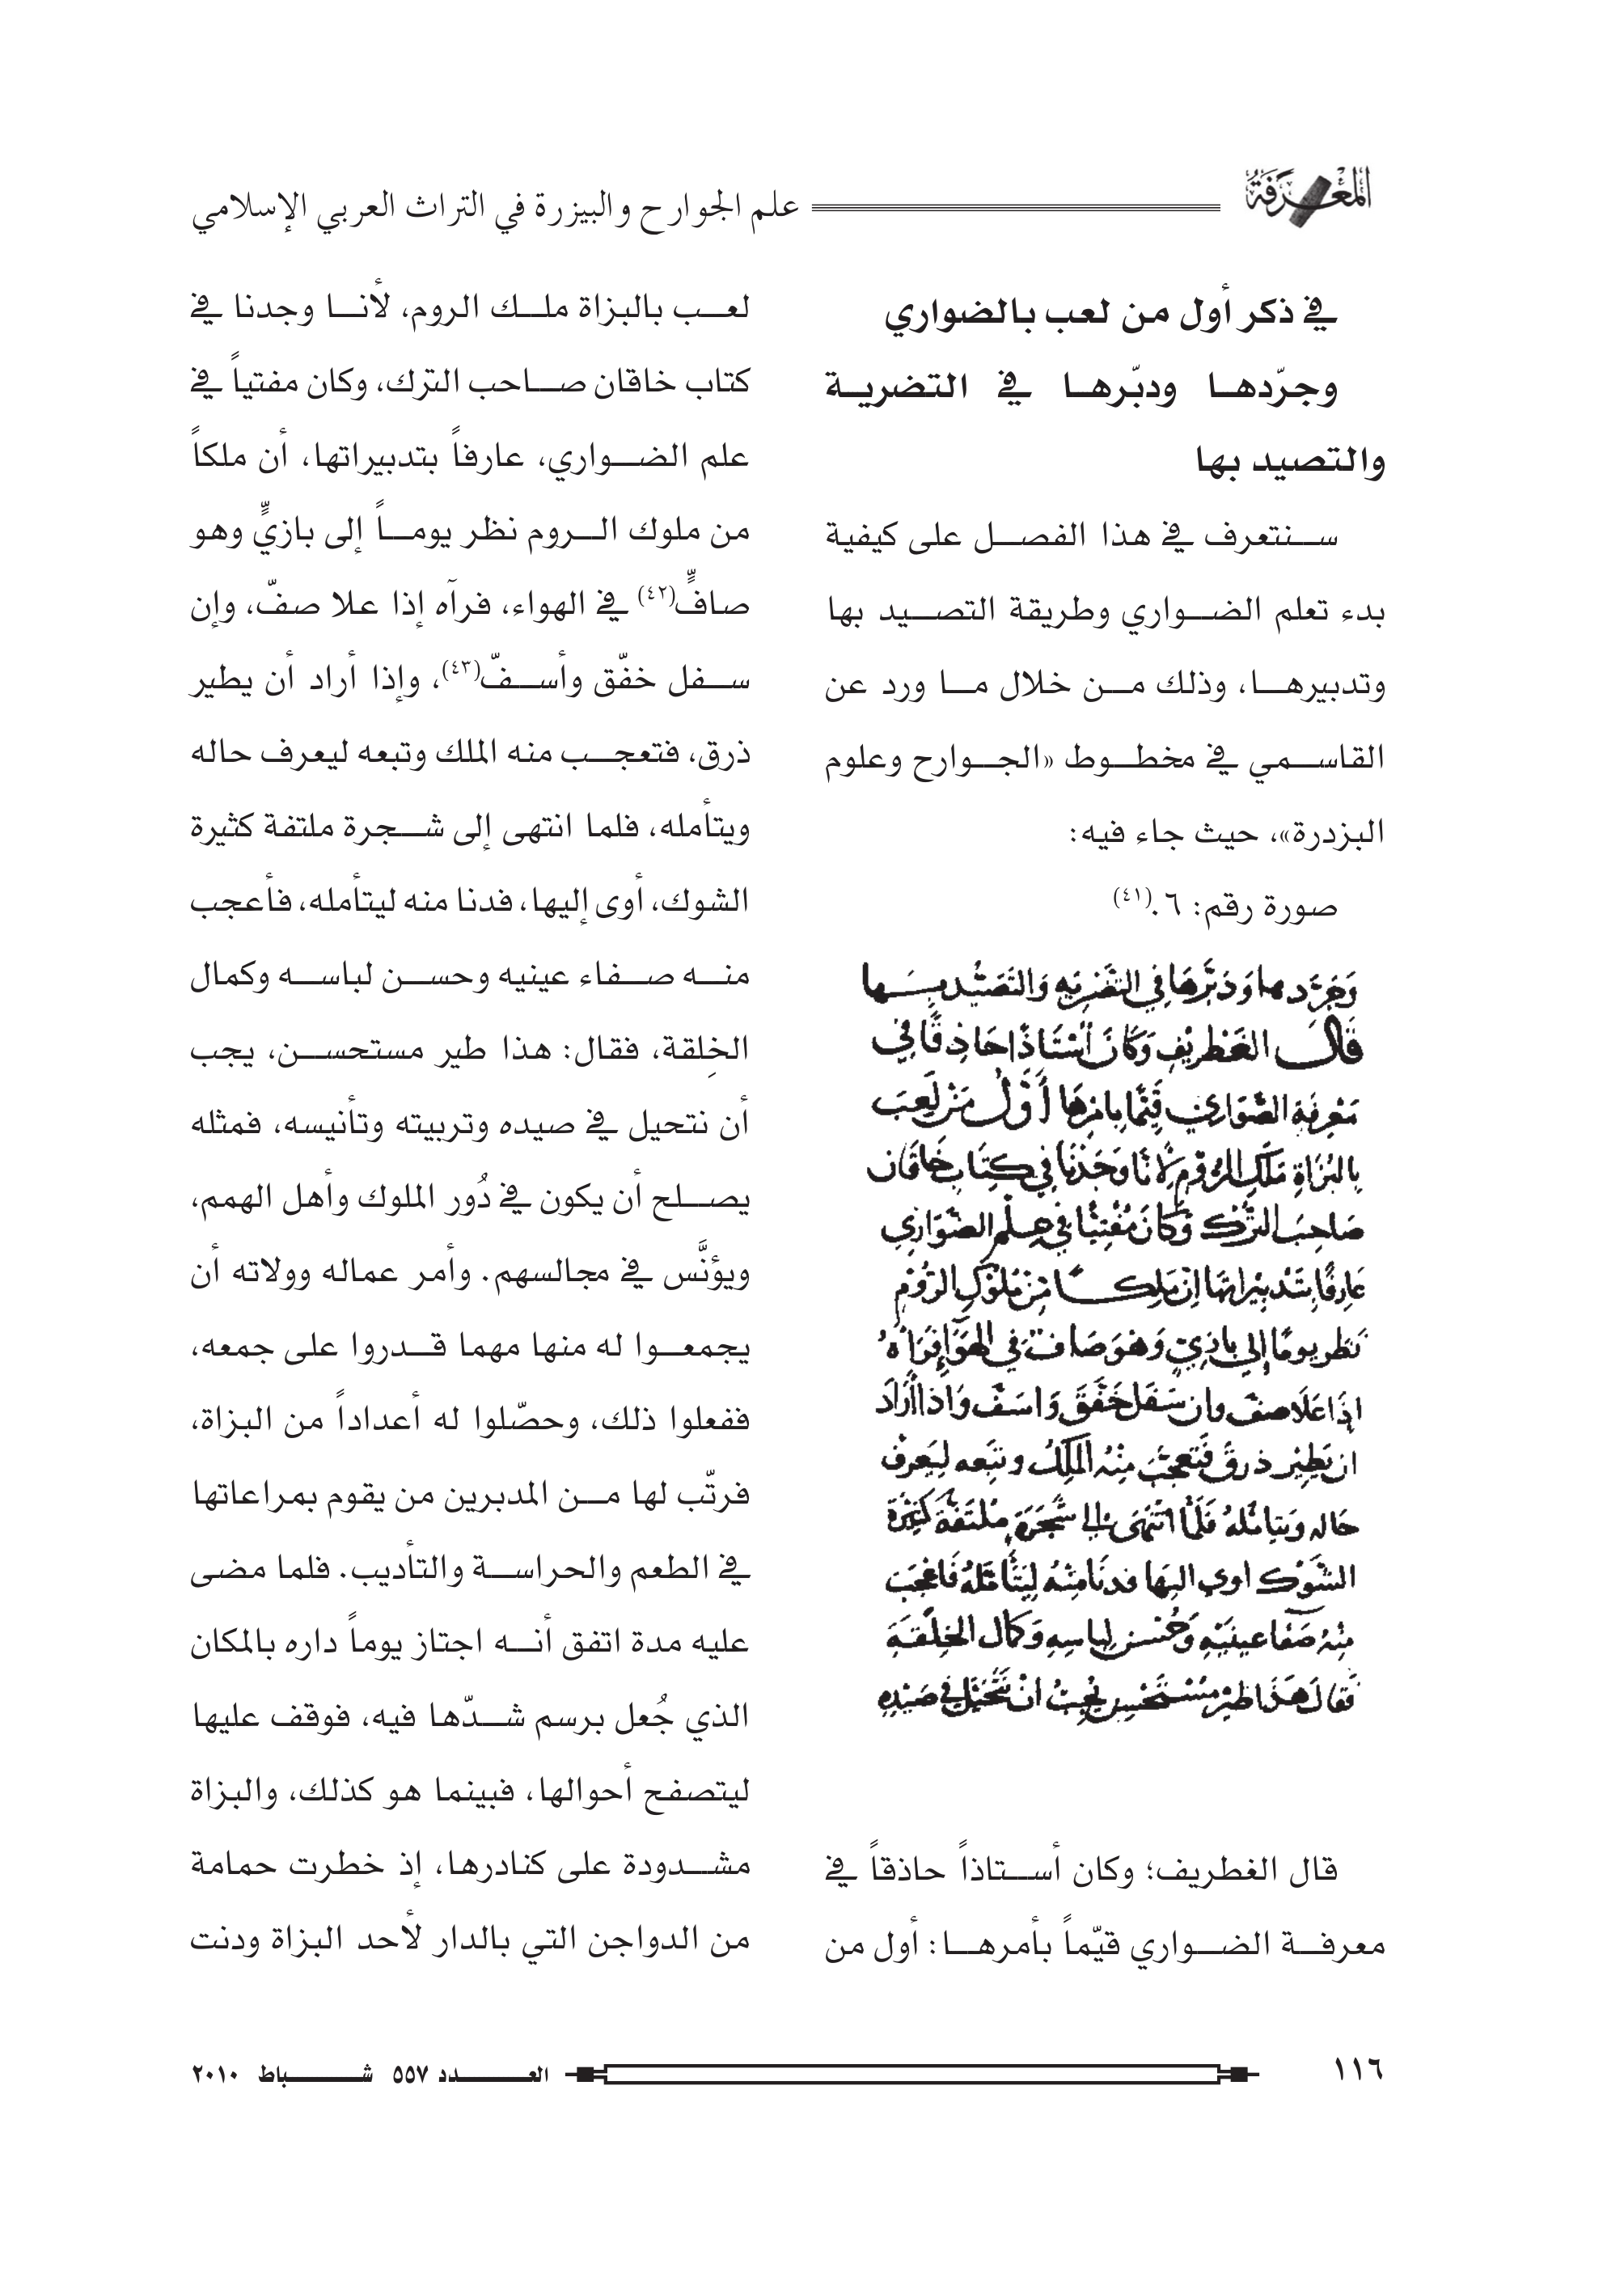 المعرفة
علم الجوارح والبيزرة في التراث العربي الإسلامي
في ذكر أول من لعب بالضواري
وجرّدها ودبّرها في التضرية
والتصيد بها
سنتعرف في هذا الفصل على كيفية
بدء تعلم الضواري وطريقة التصيد بها
وتدبيرها، وذلك من خلال ما ورد عن
القاسمي في مخطوط «الجوارح وعلوم
البزدرة»، حيث جاء فيه:
صورة رقم: ٦.(٤١)
وَجَرَّدها وَدَبَّرهَا في التَّضرِيَهِ وَالتَّصَيُّد بِهَا
قَالَ الغطريف وَكَانَ أسْتَاذًا حَاذِقًا في
مَعْرِفَةِ الضَّوَارِي قَيِّمًا بامْرِهَا أَوَّلُ مَنْ لَعِبَ
بِالبُزَاةِ مَلَكِ الرُّوْمِ لانَا وَجَدْنَا في كِتَابِ خَاقَان
صَاحِبَ التُّرْكِ وَكَانَ مُفْتِيًا في عِلْمِ الضَّوَارِي
عَارِفًا بِتَدْبِيْرَاتِهَا اِنَّ مَلِكًا مِنْ مُلوْكِ الرُّوْمِ
نَظَر يومًا إلي بازيٍّ وَهُوَ صَافّ في الهَوَآ فَرَآهُ
اِذَا عَلَا صفّ وان سَفَل خَفَّقَ وَاسَفّ وَاذا أرَادَ
ان يَطِيْر ذرقَ فَتَعجّبَ مِنْهُ الْمَلِكُ وتبَعه لِيَعرِفَ
حَاله ويتامّلهُ فَلَمَّا انْتَهَى إلى شَجَرَةٍ مُلتَفّة كَثِيْرَة
الشَّوْك اوي اليهَا فدنَا مِنْهُ لِيَتَأَمَّلَهُ فَاعْجَبَ
مِنْهُ صَفَآ عينَيْهِ وَحُسْن لِباسِهِ وَكمَال الخِلْقَةِ
فقال هَذَا طَيْر مُسْتَحْسن يَجِبُ انْ نَتَحَيّل في صَيْدِهِ
قال الغطريف؛ وكان أستاذاً حاذقاً في
معرفة الضواري قيّماً بأمرها: أول من
لعب بالبزاة ملك الروم، لأنا وجدنا في
كتاب خاقان صاحب الترك، وكان مفتياً في
علم الضواري، عارفاً بتدبيراتها، أن ملكاً
من ملوك الروم نظر يوماً إلى بازيٍّ وهو
صافٍّ(٤٢) في الهواء، فرآه إذا علا صفّ، وإن
سفل خفّق وأسفّ(٤٣)، وإذا أراد أن يطير
ذرق، فتعجب منه الملك وتبعه ليعرف حاله
ويتأمله، فلما انتهى إلى شجرة ملتفة كثيرة
الشوك، أوى إليها، فدنا منه ليتأمله، فأعجب
منه صفاء عينيه وحسن لباسه وكمال
الخِلقة، فقال: هذا طير مستحسن، يجب
أن نتحيل في صيده وتربيته وتأنيسه، فمثله
يصلح أن يكون في دُور الملوك وأهل الهمم،
ويؤنَّس في مجالسهم. وأمر عماله وولاته أن
يجمعوا له منها مهما قدروا على جمعه،
ففعلوا ذلك، وحصّلوا له أعداداً من البزاة،
فرتّب لها من المدبرين من يقوم بمراعاتها
في الطعم والحراسة والتأديب. فلما مضى
عليه مدة اتفق أنه اجتاز يوماً داره بالمكان
الذي جُعل برسم شدّها فيه، فوقف عليها
ليتصفح أحوالها، فبينما هو كذلك، والبزاة
مشدودة على كنادرها، إذ خطرت حمامة
من الدواجن التي بالدار لأحد البزاة ودنت
١١٦
العدد ٥٥٧ شباط ٢٠١٠